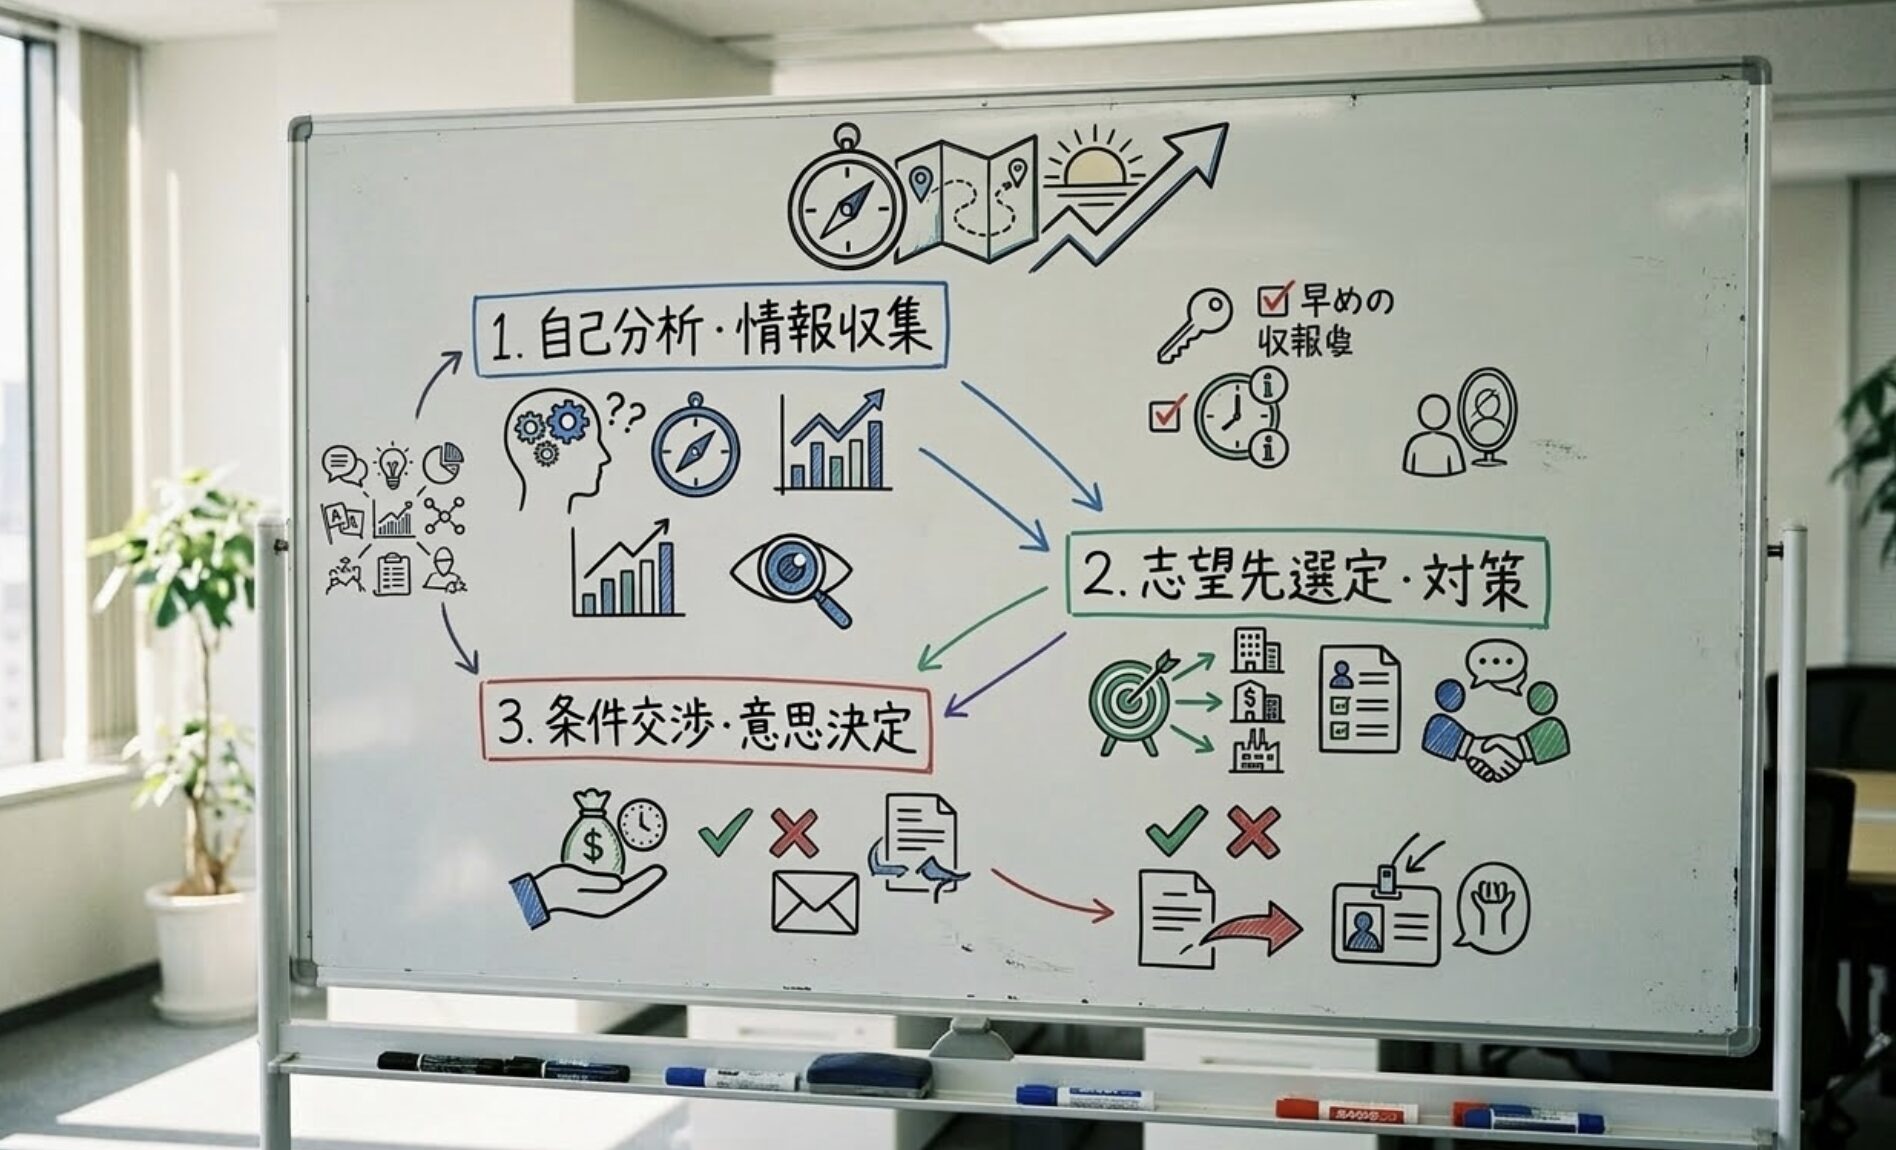 1. 自己分析・情報収集
??
早めの
i
i
2. 志望先選定・対策
A
$
3. 条件交渉・意思決定
$